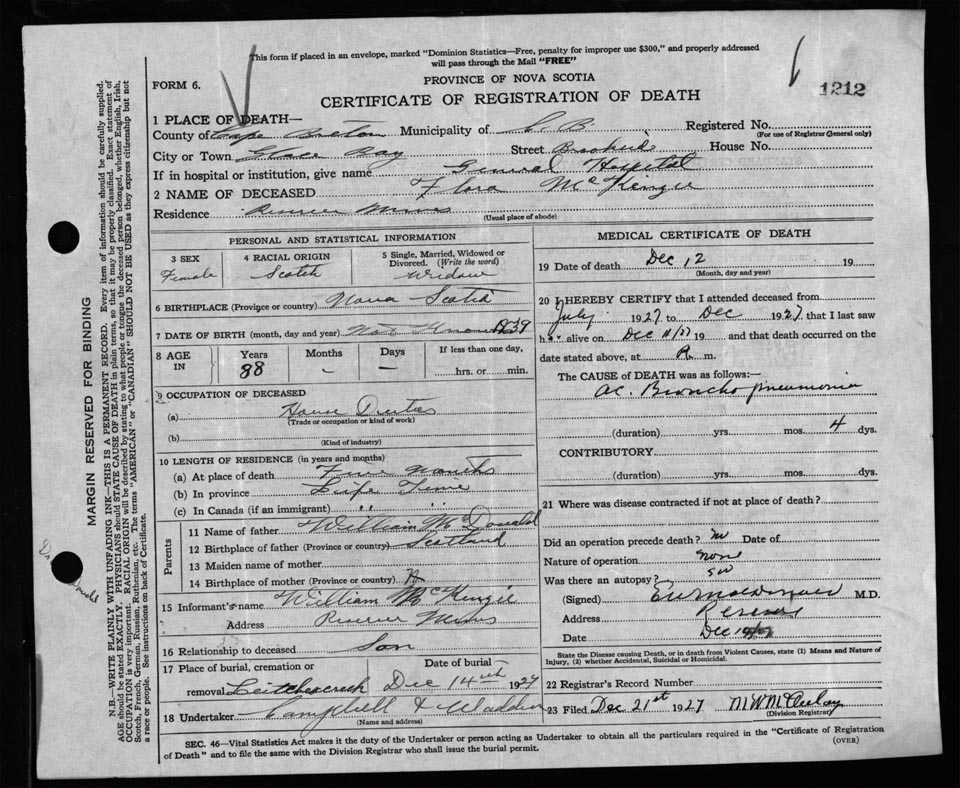 This form if placed in an envelope, marked "Dominion Statistics—Free, penalty for improper use $300," and properly addressed
will pass through the Mail "FREE"
PROVINCE OF NOVA SCOTIA
FORM 6.
1212
CERTIFICATE OF REGISTRATION OF DEATH
1 PLACE OF DEATH—
County of Cape Breton Municipality of C. B. Registered No.
(For use of Registrar General only)
City or Town Glace Bay Street House No.
If in hospital or institution, give name General Hospital
2 NAME OF DECEASED Flora McKenzie
Residence Reserve Mines
(Usual place of abode)
PERSONAL AND STATISTICAL INFORMATION
3 SEX Female
4 RACIAL ORIGIN Scotch
5 Single, Married, Widowed or Divorced. (Write the word) Widow
6 BIRTHPLACE (Province or country) Nova Scotia
7 DATE OF BIRTH (month, day and year) Not Known 1839
8 AGE IN Years 88 Months – Days – If less than one day, hrs. or min.
9 OCCUPATION OF DECEASED
(a) House Duties
(Trade or occupation or kind of work)
(b)
(Kind of industry)
10 LENGTH OF RESIDENCE (in years and months)
(a) At place of death Five months
(b) In province Life Time
(c) In Canada (if an immigrant) " "
Parents
11 Name of father William McDonald
12 Birthplace of father (Province or country) Scotland
13 Maiden name of mother
14 Birthplace of mother (Province or country)
15 Informant's name William McKenzie
Address Reserve Mines
16 Relationship to deceased Son
17 Place of burial, cremation or removal Leitches creek Date of burial Dec 14th 1927
18 Undertaker Campbell & Wadden
(Name and address)
MEDICAL CERTIFICATE OF DEATH
19 Date of death Dec 12 19
(Month, day and year)
20 I HEREBY CERTIFY that I attended deceased from
July 1927 to Dec 1927, that I last saw
h alive on Dec 11/27 19 and that death occurred on the
date stated above, at m.
The CAUSE of DEATH was as follows:—
Ac. Broncho pneumonia
(duration) yrs. mos. 4 dys.
CONTRIBUTORY
(duration) yrs. mos. dys.
21 Where was disease contracted if not at place of death?
Did an operation precede death? no Date of
Nature of operation none
Was there an autopsy?
(Signed) M.D.
Address Reserve
Date Dec
State the Disease causing Death, or in death from Violent Causes, state (1) Means and Nature of
Injury, (2) whether Accidental, Suicidal or Homicidal.
22 Registrar's Record Number
23 Filed Dec 21st 1927 M W McAulay
(Division Registrar)
SEC. 46—Vital Statistics Act makes it the duty of the Undertaker or person acting as Undertaker to obtain all the particulars required in the "Certificate of Registration
of Death" and to file the same with the Division Registrar who shall issue the burial permit.
(OVER)
MARGIN RESERVED FOR BINDING
N.B.—WRITE PLAINLY WITH UNFADING INK—THIS IS A PERMANENT RECORD. Every item of information should be carefully supplied.
AGE should be stated EXACTLY. PHYSICIANS should STATE CAUSE OF DEATH in plain terms, so that it may be properly classified. Exact statement of
OCCUPATION is very important. RACIAL ORIGIN will be described by stating to what people or tongue the deceased person belonged, whether English, Irish,
Scotch, French, German, Russian, Ruthenian, etc. The terms "AMERICAN" or "CANADIAN" SHOULD NOT BE USED as they express citizenship but not
a race or people. See instructions on back of Certificate.